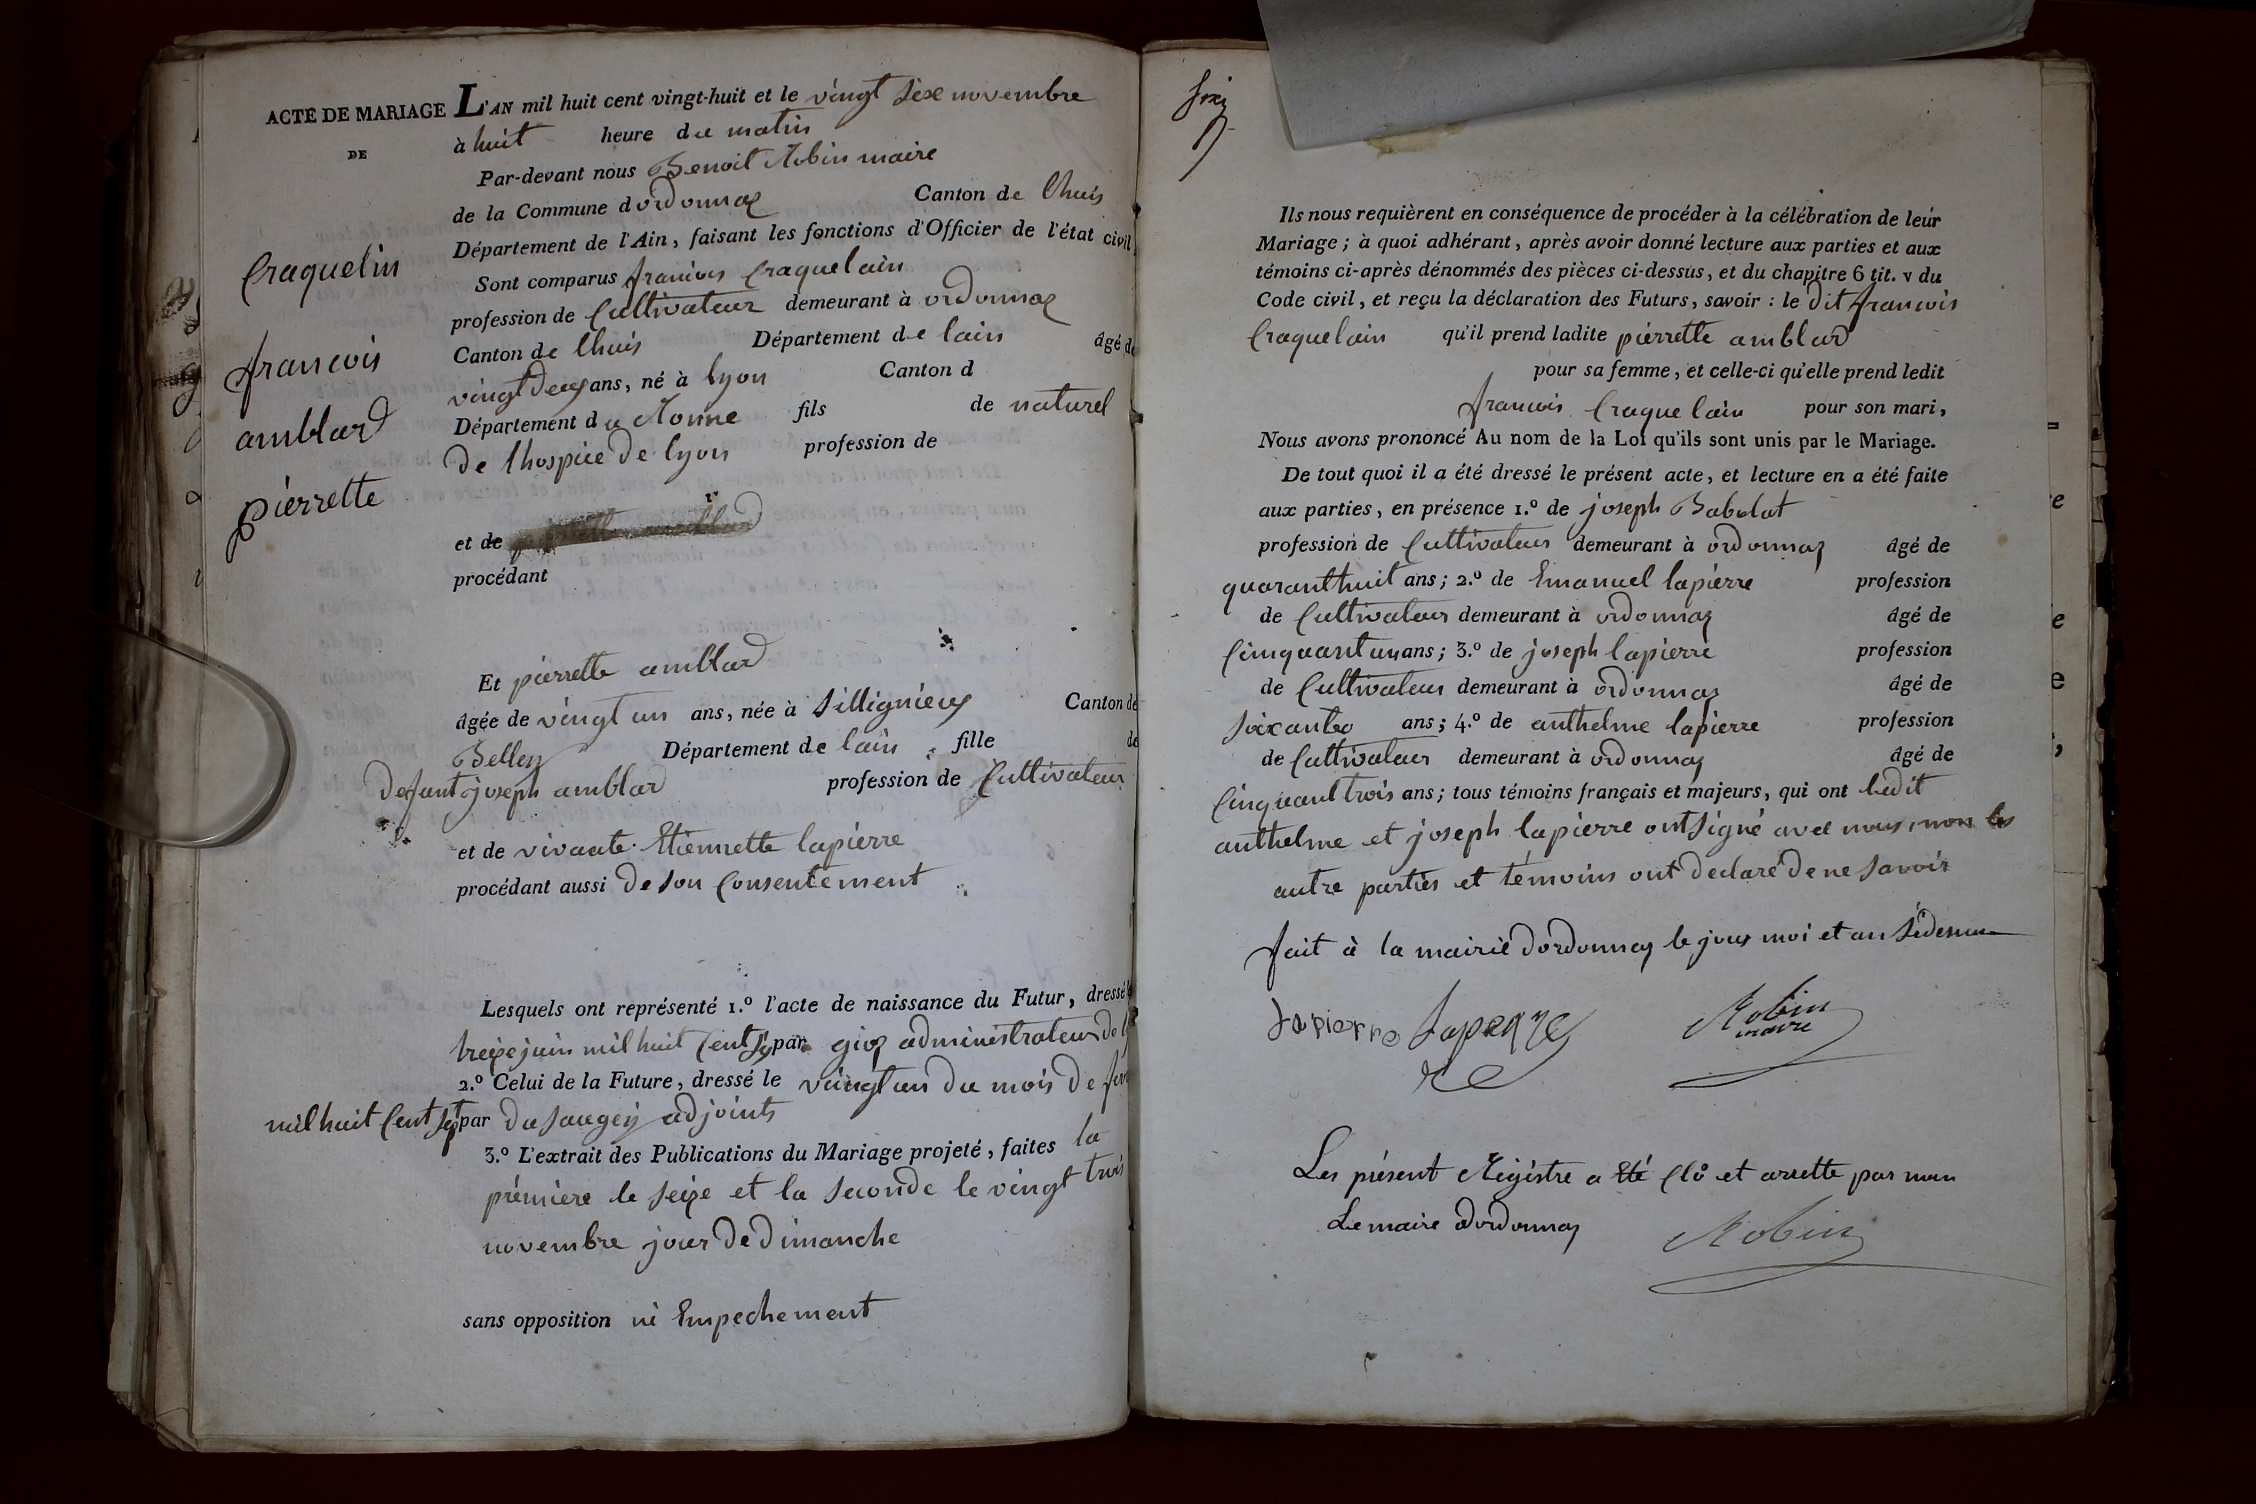 ACTE DE MARIAGE L'AN mil huit cent vingt-huit et le vingt sixe novembre
DE
à huit heure du matin
Par-devant nous Benoit Robin maire
de la Commune dordonnaz Canton de lhuis
Département de l'Ain, faisant les fonctions d'Officier de l'état civil
Craquelin
Sont comparus francois Craquelain
profession de Cultivateur demeurant à ordonnaz
Canton de lhuis Département de lain âgé de
francois
vingt deux ans, né à lyon Canton d
amblard
Département du Ronne fils de naturel
de lhospice de lyon profession de
pierrette
et de
procédant
Et pierrette amblard
âgée de vingt un ans, née à Sillignieux Canton de
Belley Département de lain fille de
defant joseph amblard profession de Cultivateur
et de vivante Etiennette lapierre
procédant aussi de son Consentement
Lesquels ont représenté 1.º l'acte de naissance du Futur, dressé
treize juin mil huit Cent par administrateur de
2.º Celui de la Future, dressé le vingt un du mois de
mil huit Cent sept par dusaugey adjoints
3.º L'extrait des Publications du Mariage projeté, faites la
première le seize et la seconde le vingt trois
novembre jour de dimanche
sans opposition ni Empechement
six
Ils nous requièrent en conséquence de procéder à la célébration de leur
Mariage; à quoi adhérant, après avoir donné lecture aux parties et aux
témoins ci-après dénommés des pièces ci-dessus, et du chapitre 6 tit. v du
Code civil, et reçu la déclaration des Futurs, savoir : le dit francois
Craquelain qu'il prend ladite pierrette amblard
pour sa femme, et celle-ci qu'elle prend ledit
francois Craquelain pour son mari,
Nous avons prononcé Au nom de la Loi qu'ils sont unis par le Mariage.
De tout quoi il a été dressé le présent acte, et lecture en a été faite
aux parties, en présence 1.º de joseph Babolat
profession de Cultivateur demeurant à ordonnaz âgé de
quaranthuit ans; 2.º de Emanuel lapierre profession
de Cultivateur demeurant à ordonnaz âgé de
Cinquantun ans; 3.º de joseph lapierre profession
de Cultivateur demeurant à ordonnaz âgé de
soixante ans; 4.º de anthelme lapierre profession
de Cultivateur demeurant à ordonnaz âgé de
Cinquant trois ans; tous témoins français et majeurs, qui ont ledit
anthelme et joseph lapierre ont signé avec nous, non les
autre parties et témoins ont declaré de ne savoir
fait à la mairie dordonnaz le jour moi et an
Lapierre Robin
maire
Les présent Régistre a été Clô et arrette par
Le maire dordonnaz
Robin